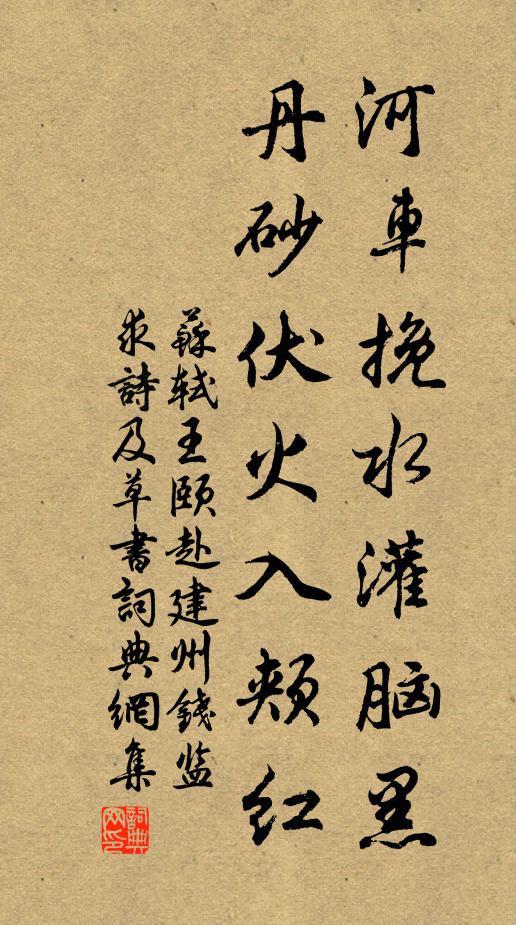 河車挽水灌脑黑
丹砂伏火入頰紅
蘇軾王頤赴建州錢監
求詩及草書詞典網集
詞典网印